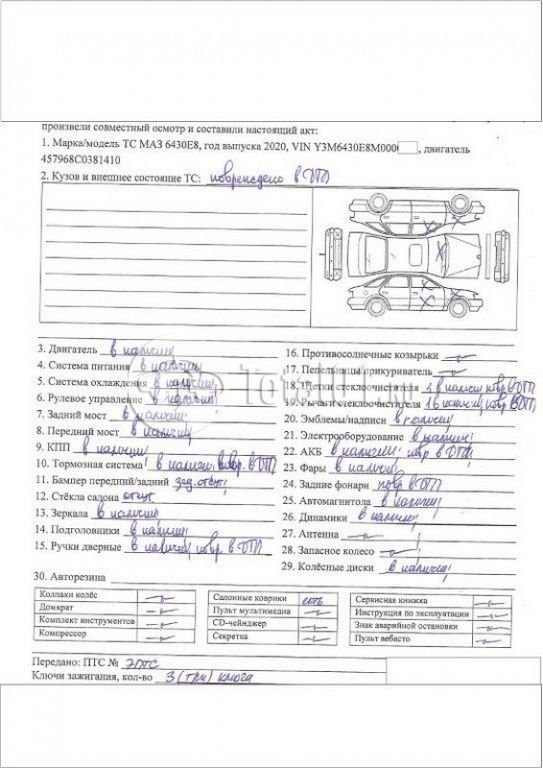 произвели совместный осмотр и составили настоящий акт:
1. Марка/модель ТС МАЗ 6430Е8, год выпуска 2020, VIN Y3M6430E8M000 , двигатель
457968C0381410
2. Кузов и внешнее состояние ТС: повреждено в ДТП
3. Двигатель в наличии
4. Система питания в наличии
5. Система охлаждения в наличии
6. Рулевое управление в наличии
7. Задний мост в наличии
8. Передний мост в наличии
9. КПП в наличии
10. Тормозная система в наличии, повр. в ДТП
11. Бампер передний/задний зад. отсут.
12. Стёкла салона отсут
13. Зеркала в наличии
14. Подголовники в наличии
15. Ручки дверные в наличии, повр. в ДТП
16. Противосолнечные козырьки
17. Пепельницы прикуриватель
18. Щетки стеклоочистителя 1 в наличии повр в ДТП
19. Рычаги стеклоочистителя 1 в наличии повр ДТП
20. Эмблемы/надписи в наличии
21. Электрооборудование в наличии
22. АКБ в наличии повр в ДТП
23. Фары в наличии
24. Задние фонари повр в ДТП
25. Автомагнитола в наличии
26. Динамики в наличии
27. Антенна
28. Запасное колесо
29. Колёсные диски в наличии
30. Авторезина
Колпаки колёс
Домкрат
Комплект инструментов
Компрессор
Салонные коврики есть
Пульт мультимедиа
CD-чейнджер
Секретка
Сервисная книжка
Инструкция по эксплуатации
Знак аварийной остановки
Пульт вебасто
Передано: ПТС № ЭПТС
Ключи зажигания, кол-во 3 (три) ключа